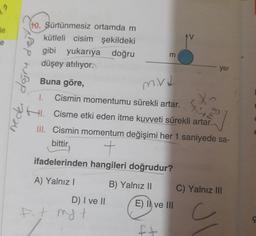 10. Sürtünmesiz ortamda m
kütleli cisim şekildeki
gibi yukarıya doğru
düşey atılıyor.
V
m
yer
Buna göre,
mv
I. Cismin momentumu sürekli artar.
II. Cisme etki eden itme kuvveti sürekli artar.
III. Cismin momentum değişimi her 1 saniyede sa-
bittir.
ifadelerinden hangileri doğrudur?
A) Yalnız I
B) Yalnız II
C) Yalnız III
D) I ve II
E) II ve III
neden doğru değil?